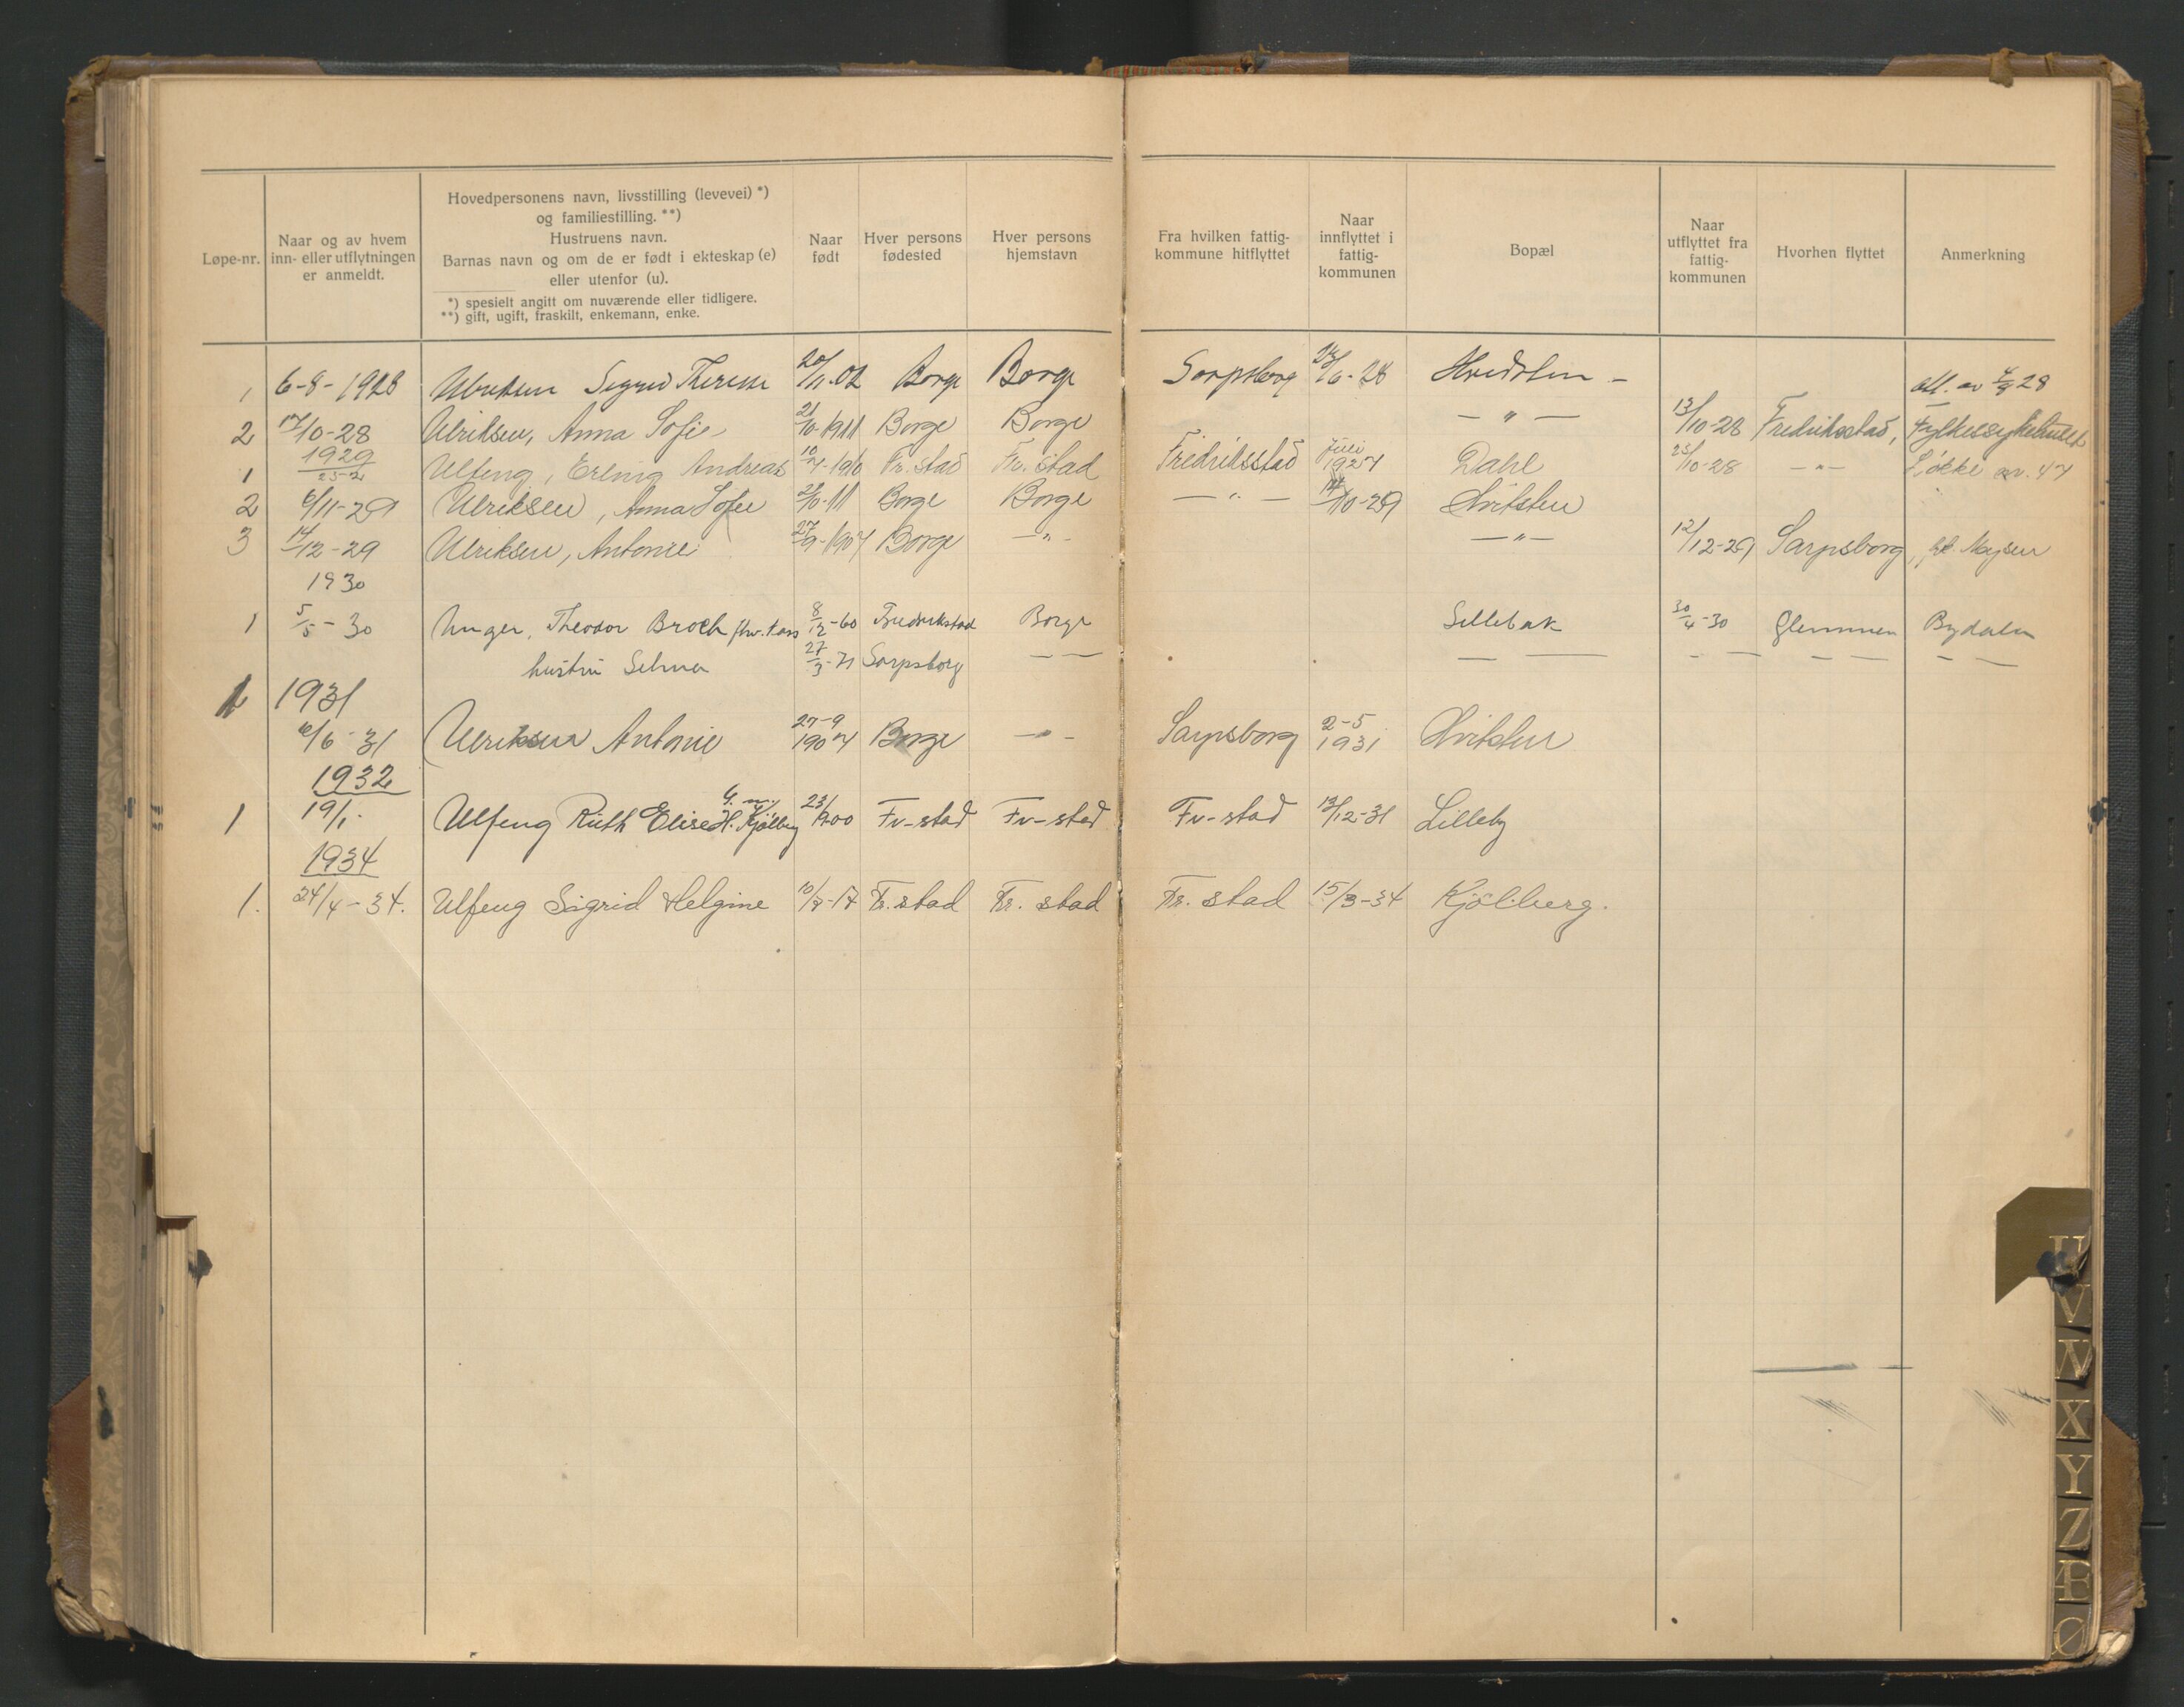 Løpe-nr.
Naar og av hvem
inn- eller utflytningen
er anmeldt.
Hovedpersonens navn, livsstilling (levevei) *)
og familiestilling. **)
Hustruens navn.
Barnas navn og om de er født i ekteskap (e)
eller utenfor (u).
*) spesielt angitt om nuværende eller tidligere.
**) gift, ugift, fraskilt, enkemann, enke.
Naar
født
Hver persons
fødested
Hver persons
hjemstavn
Fra hvilken fattig-
kommune hitflyttet
Naar
innflyttet i
fattig-
kommunen
Bopæl
Naar
utflyttet fra
fattig-
kommunen
Hvorhen flyttet
Anmerkning
1 6-8-1928 Ulriksen Sigrid Therese 20/11.02 Borge Borge Sarpsborg /6-28 Hvidsten - att. av 28
2 17/10-28 Ulriksen, Anna Sofie 21/10-1911 Borge Borge — " — 13/10-28 Fredrikstad, Fylkessykehuset
1929
1 25-2 Ulfeng, Erling Andreas 10/7-1910 Fr. stad Fr. stad Fredriksstad Juli 1927 Dahl 25/10-28 — " — Løkke nr. 47
2 6/11-29 Ulriksen, Anna Sofie 21/10-11 Borge Borge — " — 14/10-29 Hvitsten
3 14/12-29 Ulriksen, Antonie 27/9-1907 Borge — " — — " — 12/12-29 Sarpsborg, Majsen
1930
1 5/5-30 Unger, Theodor Broch 8/12-60 Fredrikstad Borge Sellebak 30/4-30 Glemmen Bydalen
hustru Selma 27/3-71 Sarpsborg — — — — — — — — — —
1 1931
6/6-31 Ulriksen Antonie 27-9 1907 Borge — " — Sarpsborg 2-5 1931 Hvitsten
1932
1 19/1. Ulfeng Ruth Elise H. Kjølberg 23/ 00 Fr-stad Fr-stad Fr-stad 13/12-31 Lilleby
1934
1. 24/4-34. Ulfeng Sigrid Helgine 10/7-17 Fr. stad Fr. stad Fr. stad 15/3-34 Kjølberg.
U
V
W
X
Y
Z
Æ
Ø